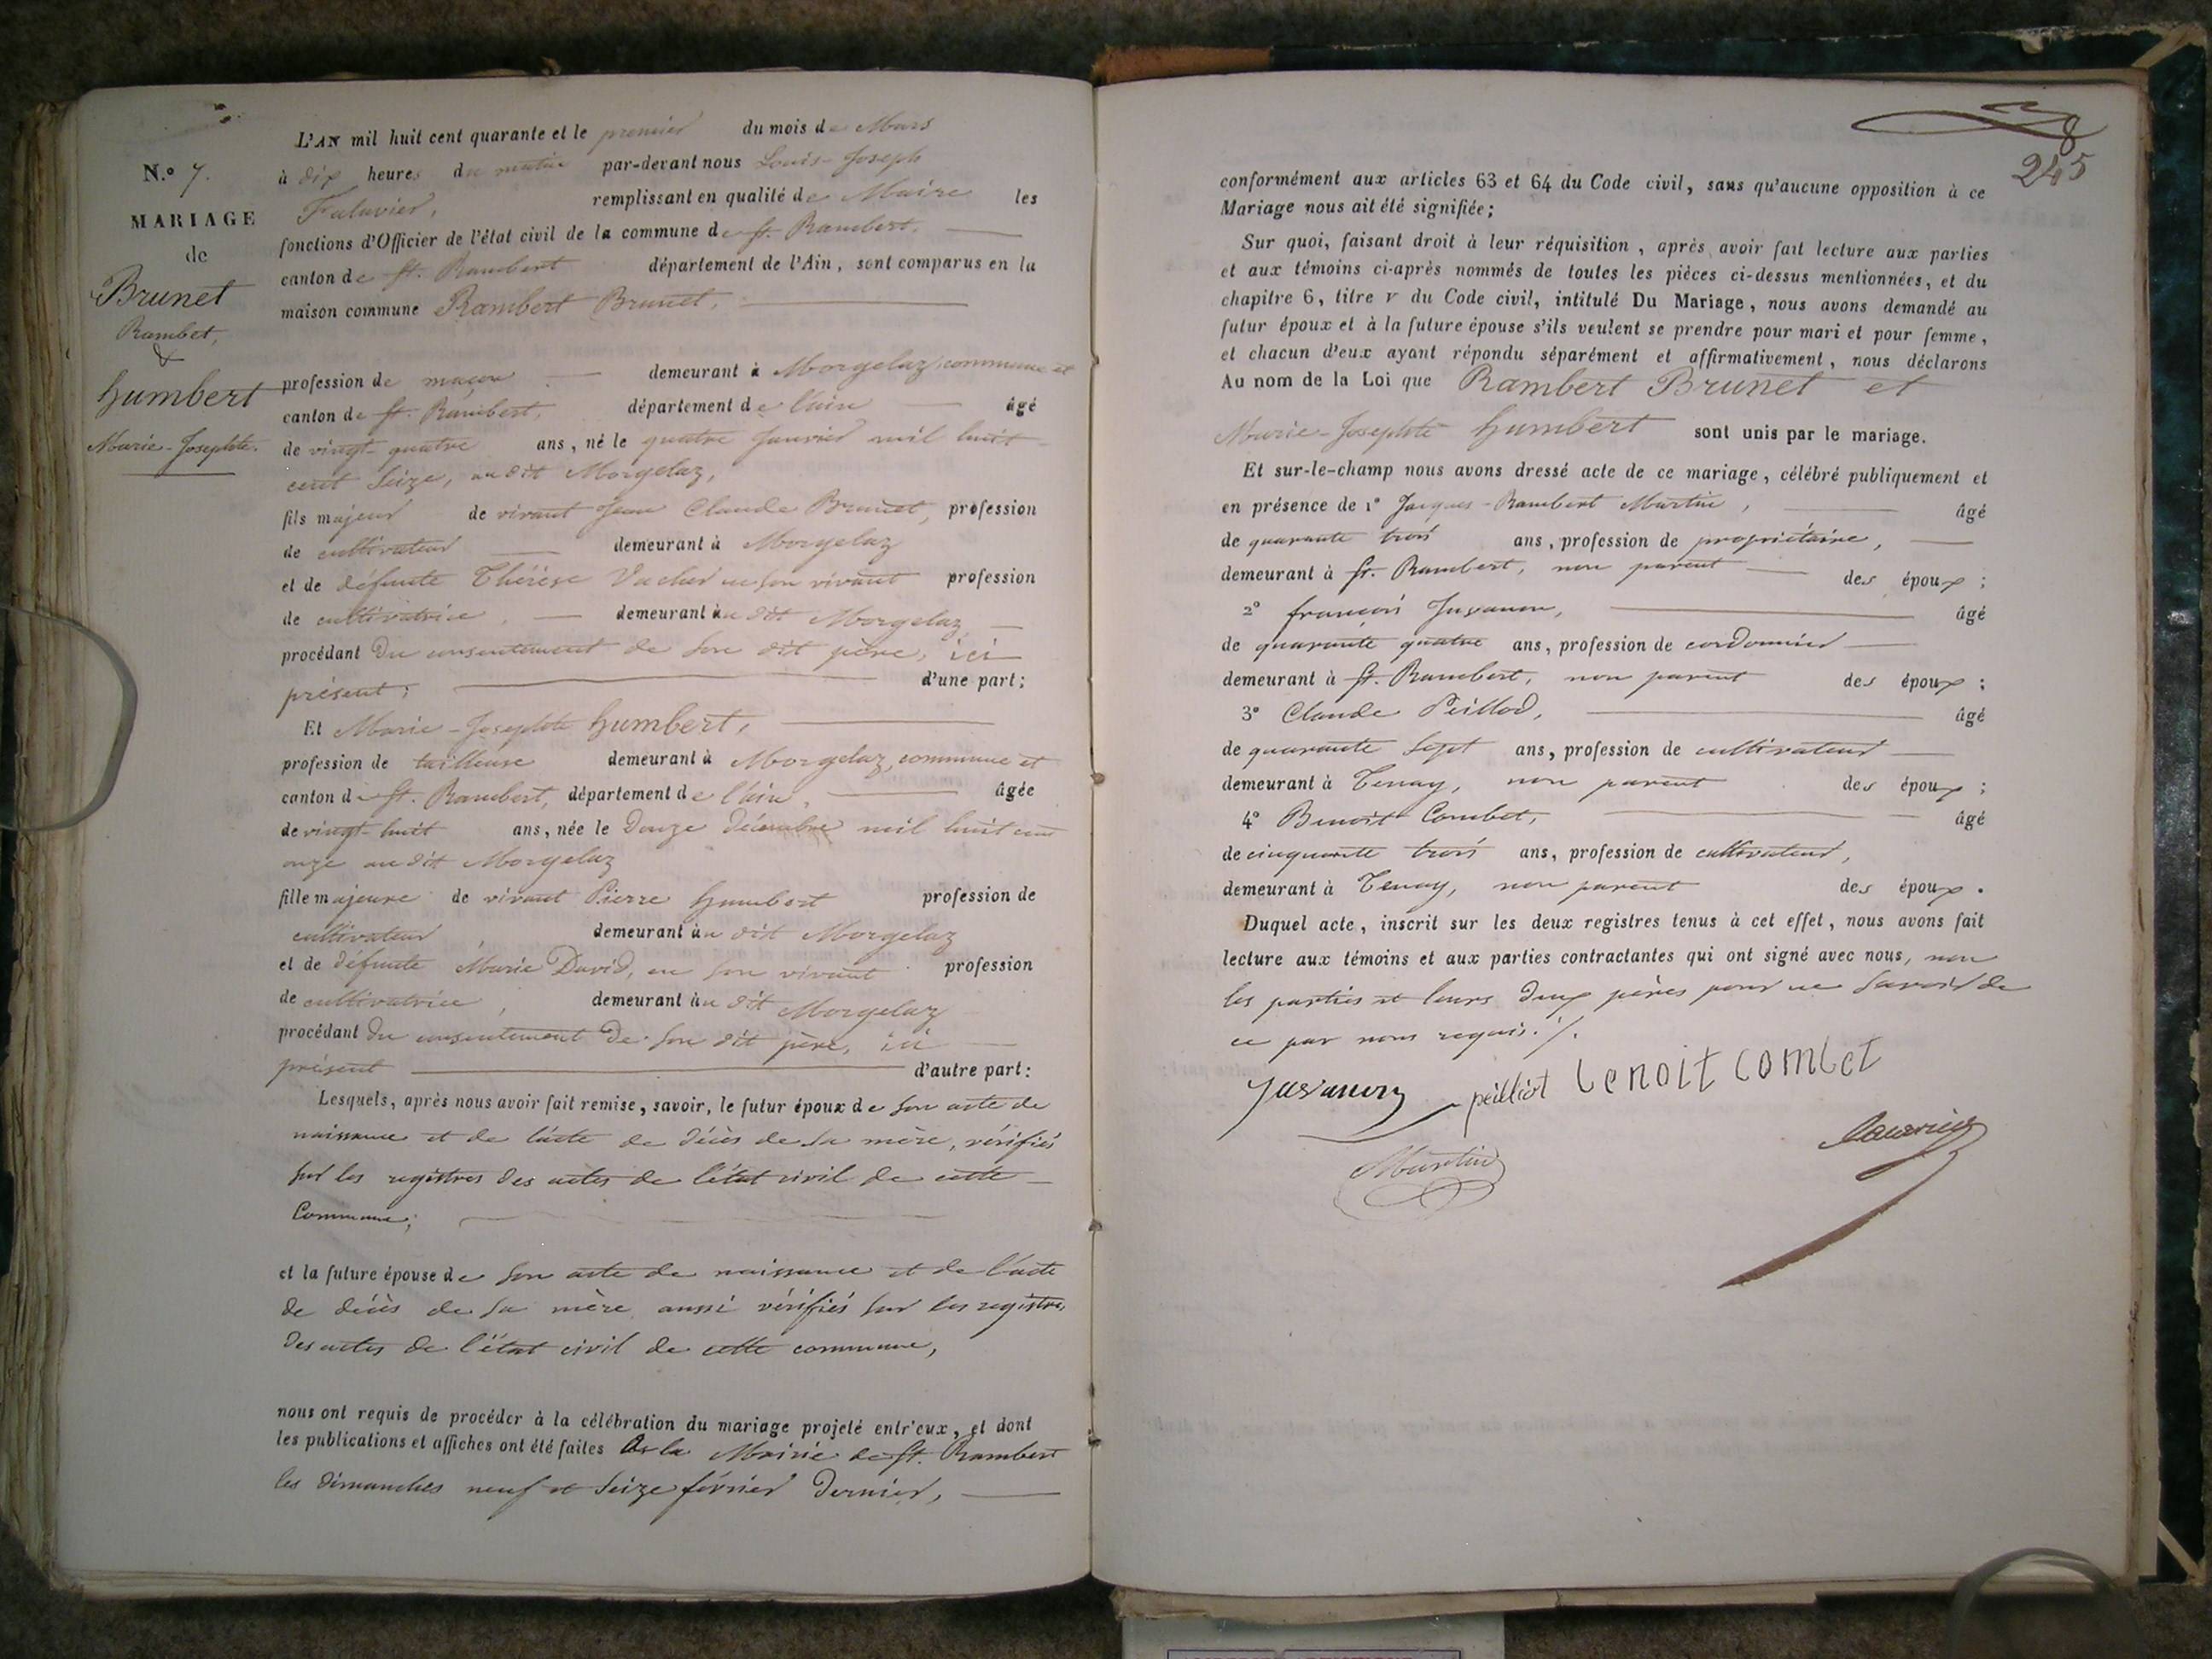 N.º 7.
MARIAGE
de
Brunet
Rambet,
&
humbert
Marie-Josephte.
L'AN mil huit cent quarante et le premier du mois de Mars
à dix heures du matin par-devant nous Louis-Joseph
remplissant en qualité de Maire les
fonctions d'Officier de l'état civil de la commune de St. Rambert.
canton de St. Rambert département de l'Ain, sont comparus en la
maison commune Rambert Brunet,
profession de maçon demeurant à Morgelaz, commune et
canton de St. Rambert, département de l'ain âgé
de vingt-quatre ans, né le quatre Janvier mil huit
cent Seize, au dit Morgelaz,
fils majeur de vivant Jean Claude Brunet, profession
de cultivateur demeurant à Morgelaz
et de défunte Thérèse Vacher en son vivant profession
de cultivatrice, demeurant au dit Morgelaz
procédant du consentement de son dit père, ici
présent; d'une part;
Et Marie-Josephte humbert,
profession de tailleuse demeurant à Morgelaz, commune et
canton de St. Rambert, département de l'ain, âgée
de vingt-huit ans, née le Douze Décembre mil huit cent
onze au dit Morgelaz
fille majeure de vivant Pierre humbert profession de
cultivateur demeurant au dit Morgelaz
et de défunte Marie David, en son vivant profession
de cultivatrice, demeurant au dit Morgelaz
procédant du consentement de son dit père, ici
présent d'autre part:
Lesquels, après nous avoir fait remise, savoir, le futur époux de son acte de
naissance et de l'acte de décès de sa mère, vérifiés
sur les registres des actes de l'état civil de cette
Commune;
et la future épouse de son acte de naissance et de l'acte
de décès de sa mère aussi vérifiés sur les registres
des actes de l'état civil de cette commune,
nous ont requis de procéder à la célébration du mariage projeté entr'eux, et dont
les publications et affiches ont été faites à la Mairie de St. Rambert
les dimanches neuf et Seize février dernier,
245
conformément aux articles 63 et 64 du Code civil, sans qu'aucune opposition à ce
Mariage nous ait été signifiée;
Sur quoi, faisant droit à leur réquisition, après avoir fait lecture aux parties
et aux témoins ci-après nommés de toutes les pièces ci-dessus mentionnées, et du
chapitre 6, titre v du Code civil, intitulé Du Mariage, nous avons demandé au
futur époux et à la future épouse s'ils veulent se prendre pour mari et pour femme,
et chacun d'eux ayant répondu séparément et affirmativement, nous déclarons
Au nom de la Loi que Rambert Brunet et
Marie-Josephte humbert sont unis par le mariage.
Et sur-le-champ nous avons dressé acte de ce mariage, célébré publiquement et
en présence de 1º Jacques-Rambert Martin, âgé
de quarante trois ans, profession de propriétaire,
demeurant à St. Rambert, non parent des époux;
2º françois Jusanon, âgé
de quarante quatre ans, profession de cordonnier
demeurant à St. Rambert, non parent des époux;
3º Claude Peillod, âgé
de quarante Sept ans, profession de cultivateur
demeurant à Tenay, non parent des époux;
4º Benoit Combet, âgé
de cinquante trois ans, profession de cultivateur,
demeurant à Tenay, non parent des époux.
Duquel acte, inscrit sur les deux registres tenus à cet effet, nous avons fait
lecture aux témoins et aux parties contractantes qui ont signé avec nous, non
les parties et leurs deux pères pour ne savoir de
ce par nous requis./.
peilliot benoit combet
Martin